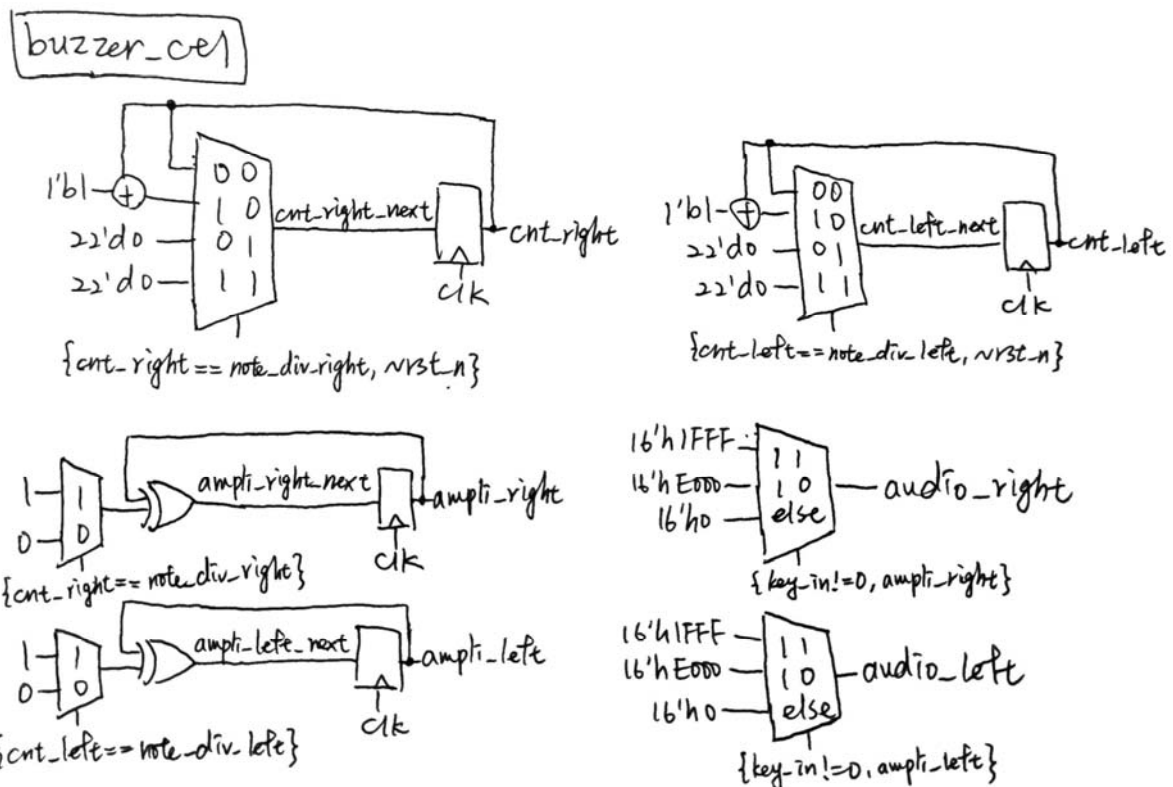 buzzer_ctl
1'b1
+
22'd0
22'd0
0 0
1 0
0 1
1 1
cnt_right_next
cnt_right
clk
{cnt_right == note_div_right, ~rst_n}
1'b1
+
22'd0
22'd0
00
10
01
11
cnt_left_next
cnt_left
clk
{cnt_left == note_div_left, ~rst_n}
1
0
1
0
ampli_right_next
ampli_right
clk
{cnt_right == note_div_right}
16'h1FFF
16'hE000
16'h0
11
10
else
audio_right
{key_in!=0, ampli_right}
1
0
1
0
ampli_left_next
ampli_left
clk
{cnt_left == note_div_left}
16'h1FFF
16'hE000
16'h0
11
10
else
audio_left
{key_in!=0, ampli_left}